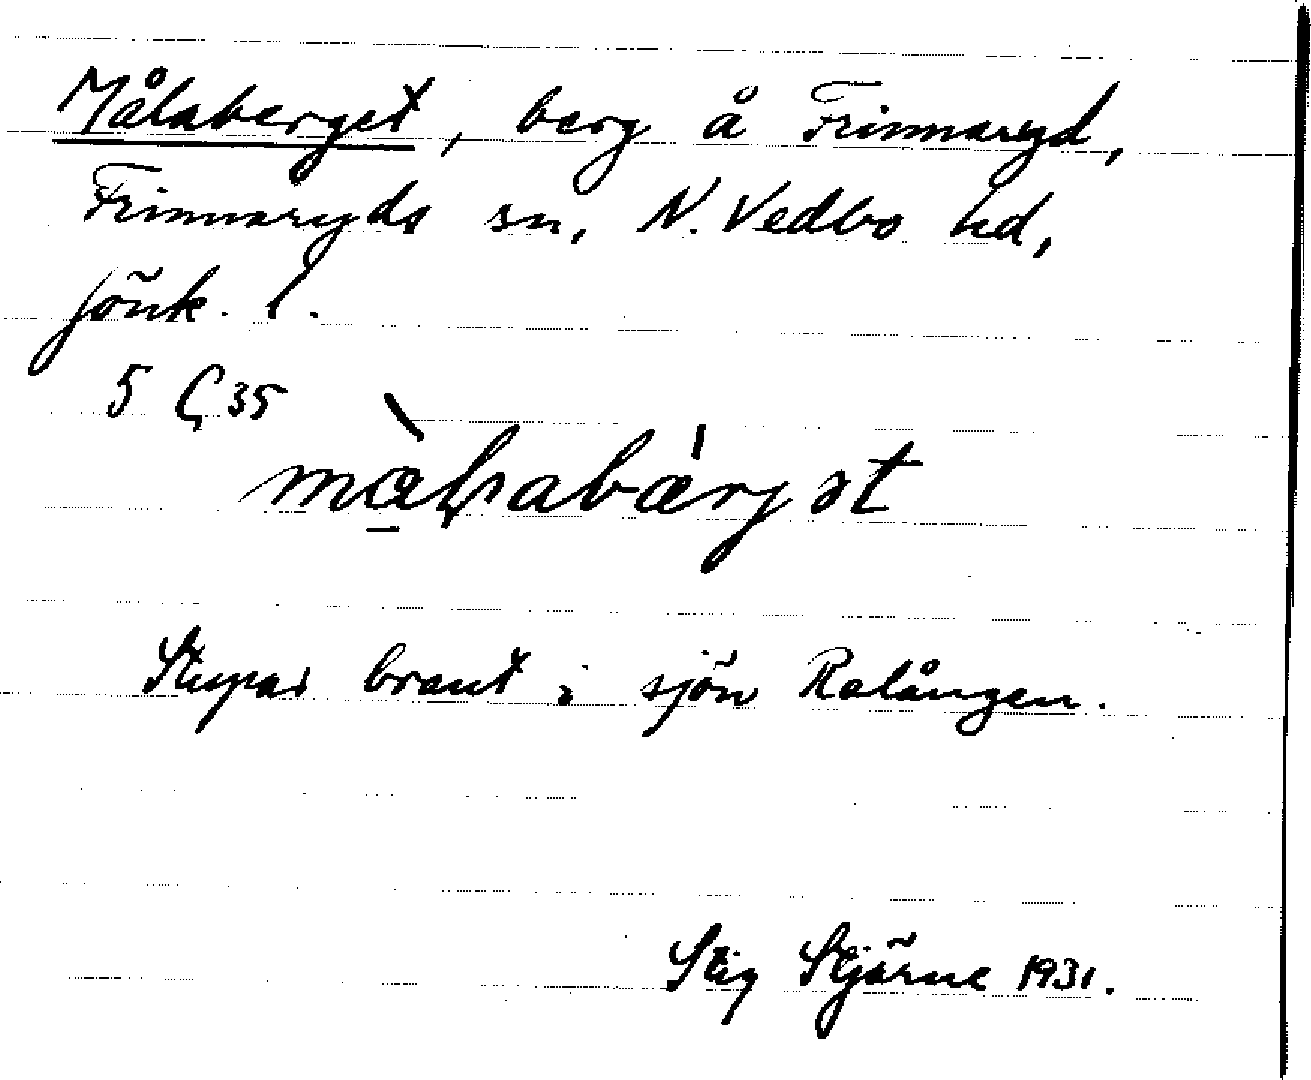 Målaberget, berg å Frinnaryd,
Frinnaryds sn, N. Vedbo hd,
Jönk. l.
5 Ç 35
Stupar brant i sjön Ralången.
Stig Stjärne 1931.